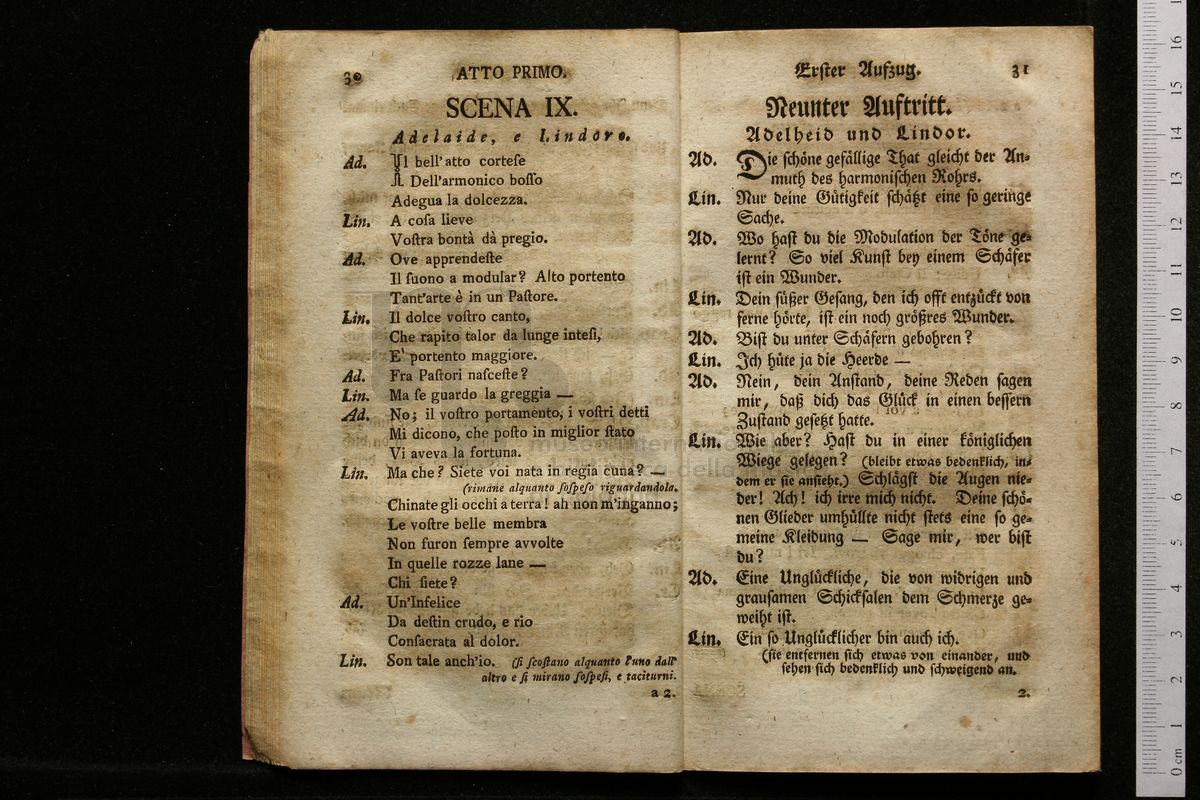 30 ATTO PRIMO.
SCENA IX.
Adelaide, e Lindoro.
Ad. Il bell'atto corteſe
Dell'armonico boſſo
Adegua la dolcezza.
Lin. A coſa lieve
Voſtra bontà dà pregio.
Ad. Ove apprendeſte
Il ſuono a modular? Alto portento
Tant'arte è in un Paſtore.
Lin. Il dolce voſtro canto,
Che rapito talor da lunge inteſi,
E' portento maggiore.
Ad. Fra Paſtori naſceſte?
Lin. Ma ſe guardo la greggia —
Ad. No; il voſtro portamento, i voſtri detti
Mi dicono, che poſto in miglior ſtato
Vi aveva la fortuna.
Lin. Ma che? Siete voi nata in regia cuna? —
(rimane alquanto ſoſpeſo riguardandola.
Chinate gli occhi a terra! ah non m'inganno;
Le voſtre belle membra
Non furon ſempre avvolte
In quelle rozze lane —
Chi ſiete?
Ad. Un'Infelice
Da deſtin crudo, e rio
Conſacrata al dolor.
Lin. Son tale anch'io. (ſi ſcoſtano alquanto l'uno dall'
altro e ſi mirano ſoſpeſi, e taciturni.
a 2.
Erſter Aufzug. 31
Neunter Auftritt.
Adelheid und Lindor.
Ad. Die ſchöne gefällige That gleicht der An-
muth des harmoniſchen Rohrs.
Lin. Nur deine Gütigkeit ſchätzt eine ſo geringe
Sache.
Ad. Wo haſt du die Modulation der Töne ge-
lernt? So viel Kunſt bey einem Schäfer
iſt ein Wunder.
Lin. Dein ſüßer Geſang, den ich offt entzückt von
ferne hörte, iſt ein noch größres Wunder.
Ad. Biſt du unter Schäfern gebohren?
Lin. Ich hüte ja die Heerde —
Ad. Nein, dein Anſtand, deine Reden ſagen
mir, daß dich das Glück in einen beſſern
Zuſtand geſetzt hatte.
Lin. Wie aber? Haſt du in einer königlichen
Wiege gelegen? (bleibt etwas bedenklich, in-
dem er ſie anſieht.) Schlägſt die Augen nie-
der! Ach! ich irre mich nicht. Deine ſchö-
nen Glieder umhüllte nicht ſtets eine ſo ge-
meine Kleidung — Sage mir, wer biſt
du?
Ad. Eine Unglückliche, die von widrigen und
grauſamen Schickſalen dem Schmerze ge-
weiht iſt.
Lin. Ein ſo Unglücklicher bin auch ich.
(ſie entfernen ſich etwas von einander, und
ſehen ſich bedenklich und ſchweigend an.
2.
0 cm 1 2 3 4 5 6 7 8 9 10 11 12 13 14 15 16